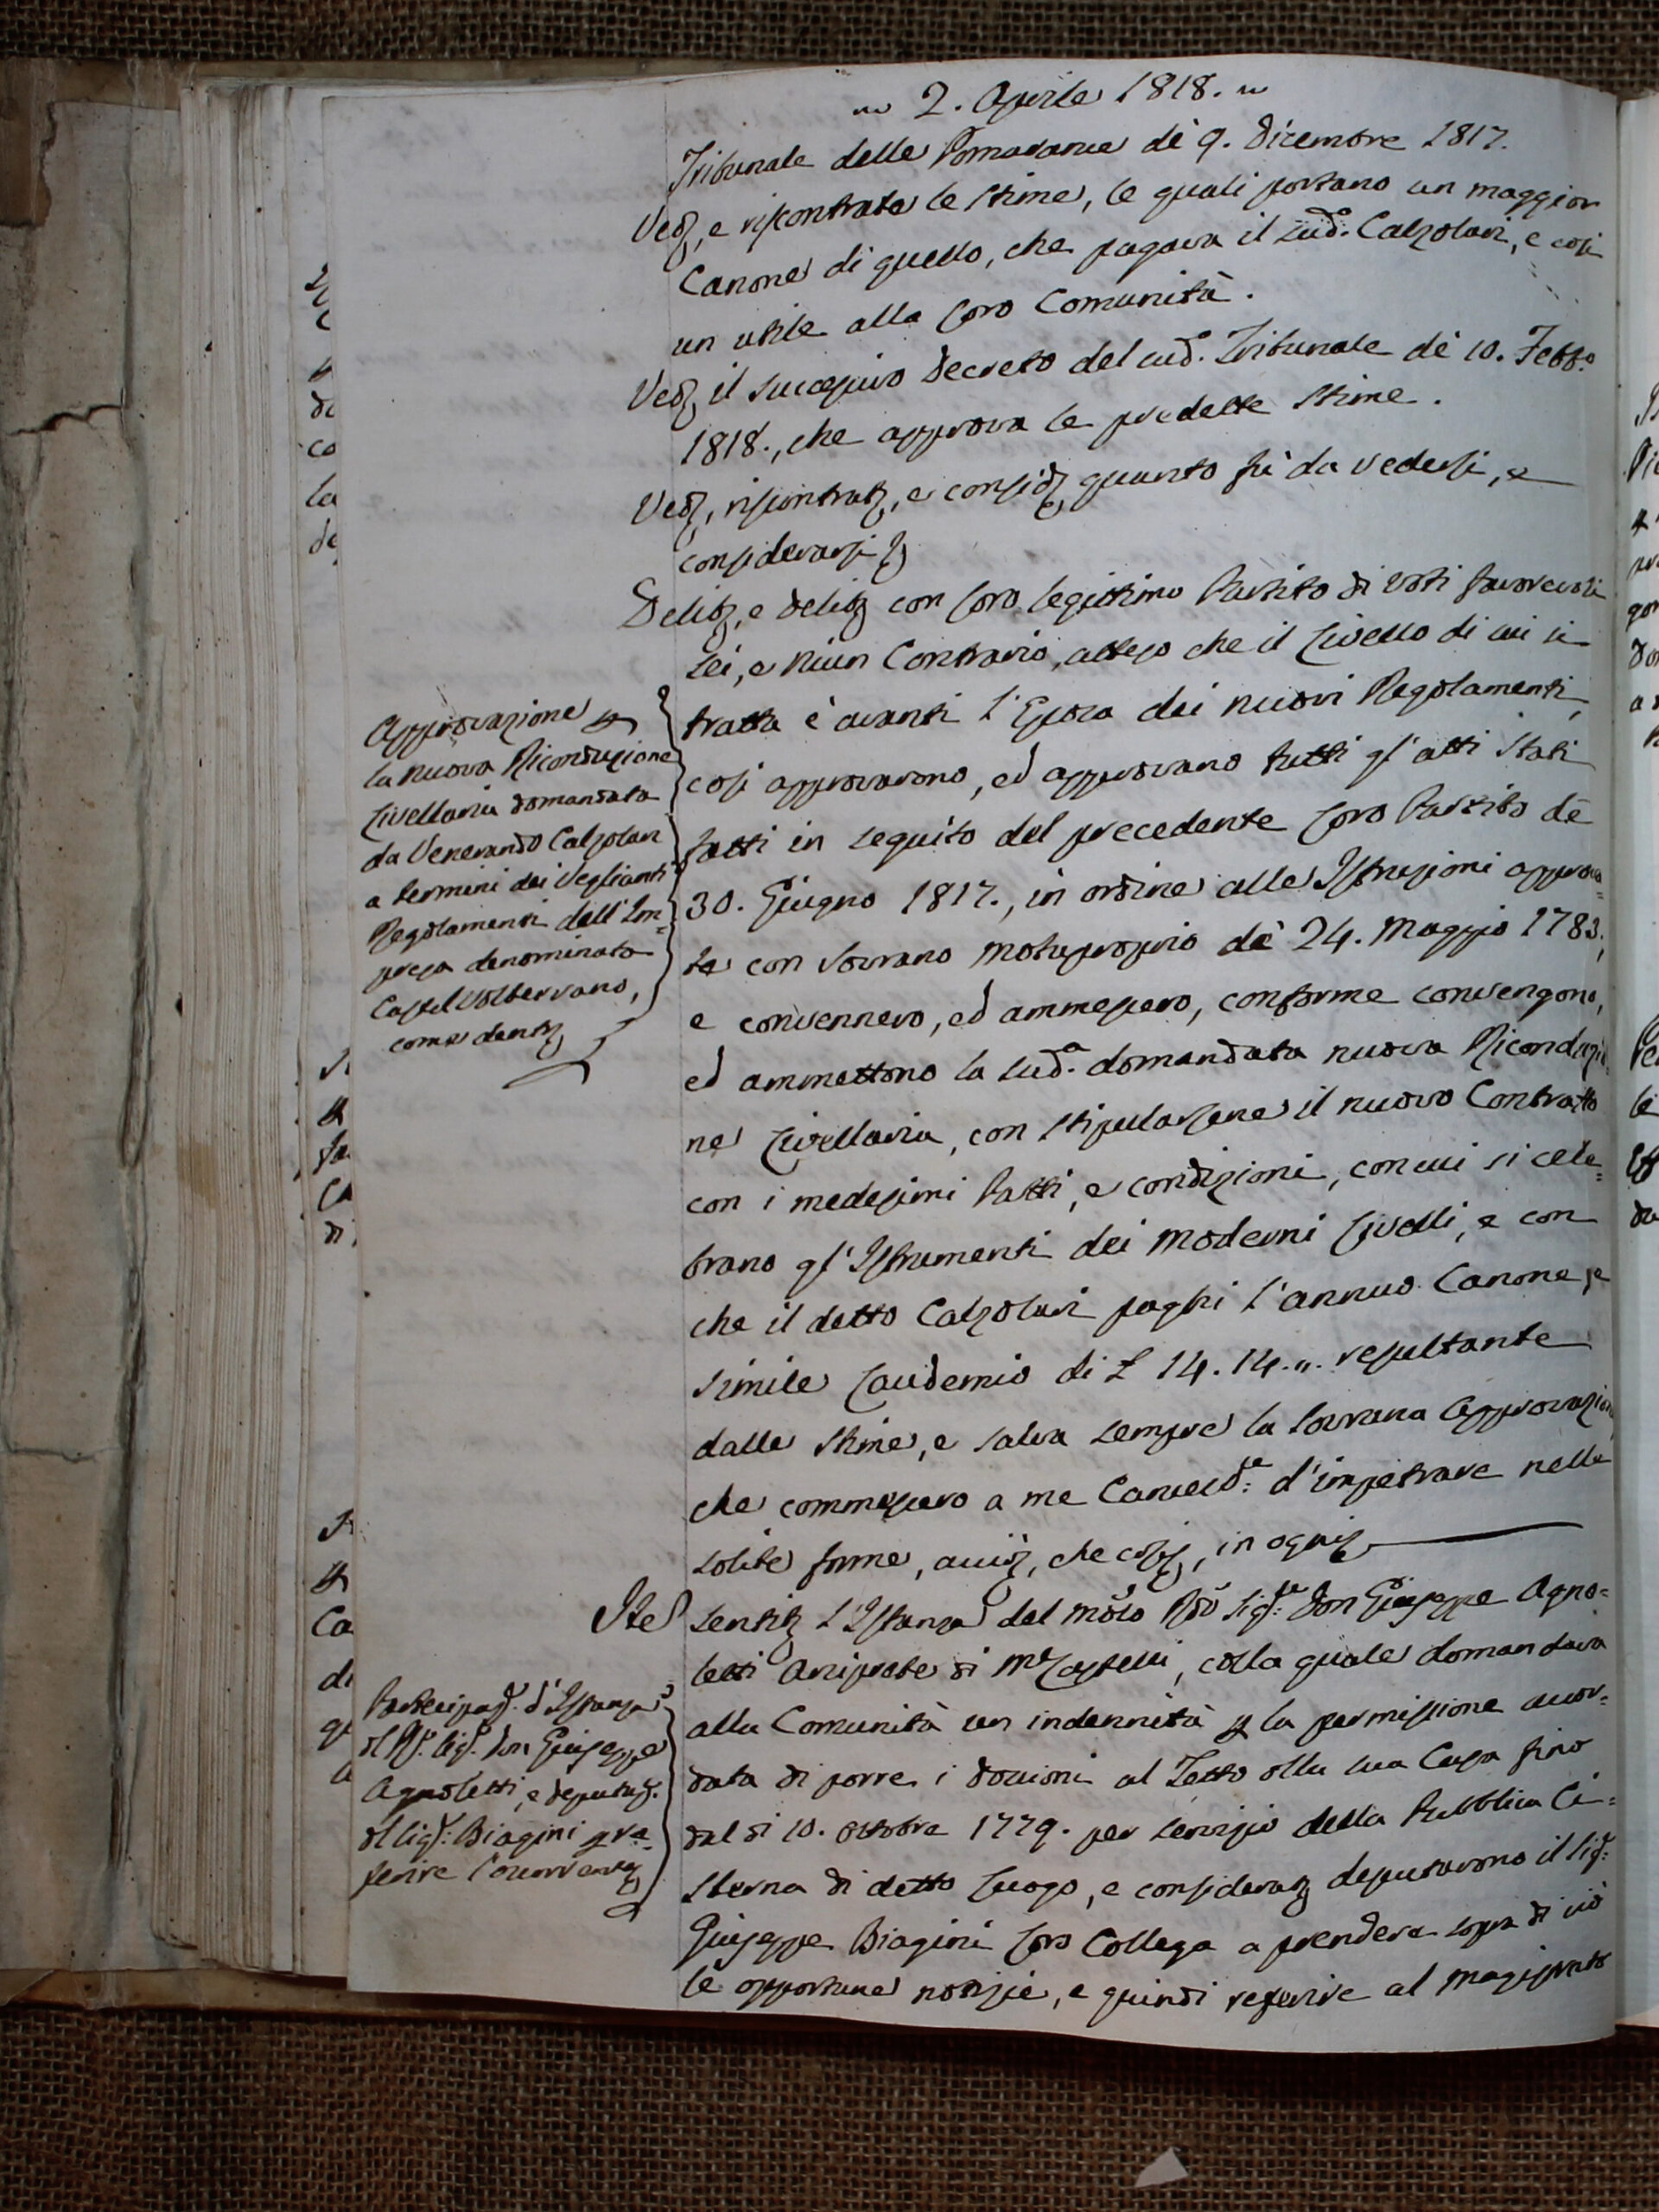 2. Aprile 1818.
Tribunale delle Pomarance de 9. Dicembre 1817.
Ved, e riscontrate le Stime, le quali portano un maggior
Canone di quello, che pagava il sud.o Calzolari, e così
un utile alla loro Comunità.
Ved il successivo Decreto del sud.o Tribunale de 10. Febb.o
1818., che approva le predette Stime.
Ved, riscontrat, e consid quanto fù da vedersi, e
considerarsi
Delib, e delib con loro legittimo Partito di voti favorevoli
sei, e niun Contrario, atteso che il Livello di cui si
tratta è avanti l'Epoca dei nuovi Regolamenti,
così approvarono, ed approvano tutti gl'atti stati
fatti in seguito del precedente loro Partito de
30. Giugno 1817., in ordine alle Istruzioni approva=
te con Sovrano Motuproprio de 24. Maggio 1783.,
e convennero, ed ammessero, conforme convengono,
ed ammettono la sud.a domandata nuova Riconduzio
ne Livellaria, con stipularsene il nuovo Contratto
con i medesimi Patti, e condizioni, con cui si cele=
brano gl'Istrumenti dei moderni Livelli, e con
che il detto Calzolari paghi l'annuo Canone, e
simile Laudemio di £ 14. 14. ". resultante
dalle Stime, e salva sempre la Sovrana Approvazione
che commessero a me Cancell.e d'impetrare nelle
solite forme, che così, in ogni
Approvazione p
la nuova Riconduzione
Livellaria domandata
da Venerando Calzolari
a termini dei Veglianti
Regolamenti dell'Im=
presa denominata
Castel Volterrano,
come dent
Ite Sentit l'Istanza del Molo Rdo Sig.re Don Giuseppe Agno=
letti Arciprete di M. Castelli, colla quale domandava
alla Comunità un indennità p la permissione accor=
data di porre i doccioni al Tetto della sua Casa fino
dal dì 10. Ottobre 1779. per servizio della Pubblica Ci=
sterna di detto Luogo, e considerat deputarono il Sig.
Giuseppe Biagini loro Collega a prendere sopra di ciò
le opportune notizie, e quindi referire al Magistrato
Partecipaz. d'Istanza
del R. Sig. Don Giuseppe
Agnoletti, e deputaz.
del Sig. Biagini p re=
ferire l'occorrente